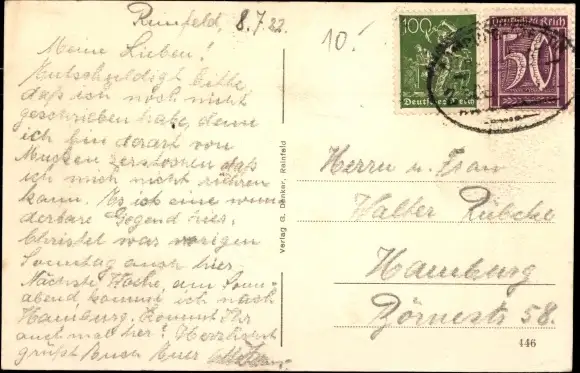 Reinfeld, 8.7.22.
Meine Lieben!
Entschuldigt bitte,
daß ich noch nicht
geschrieben habe, denn
ich bin derart von
Mucken zerstochen, daß
ich mich nicht rühren
kann. Es ist eine wun-
derbare Gegend hier.
Christel war vorigen
Sonntag auch hier.
Nächste Woche, am Sonn-
abend, komme ich nach
Hamburg. Kommt Ihr
auch mal her? Herzlichst
grüßt Euch Euer
10.
Verlag G. Denker, Reinfeld
100
Deutsches Reich
Deutsches Reich
50
Herrn u. Frau
Walter Rübcke
Hamburg
Börnestr 58.
446